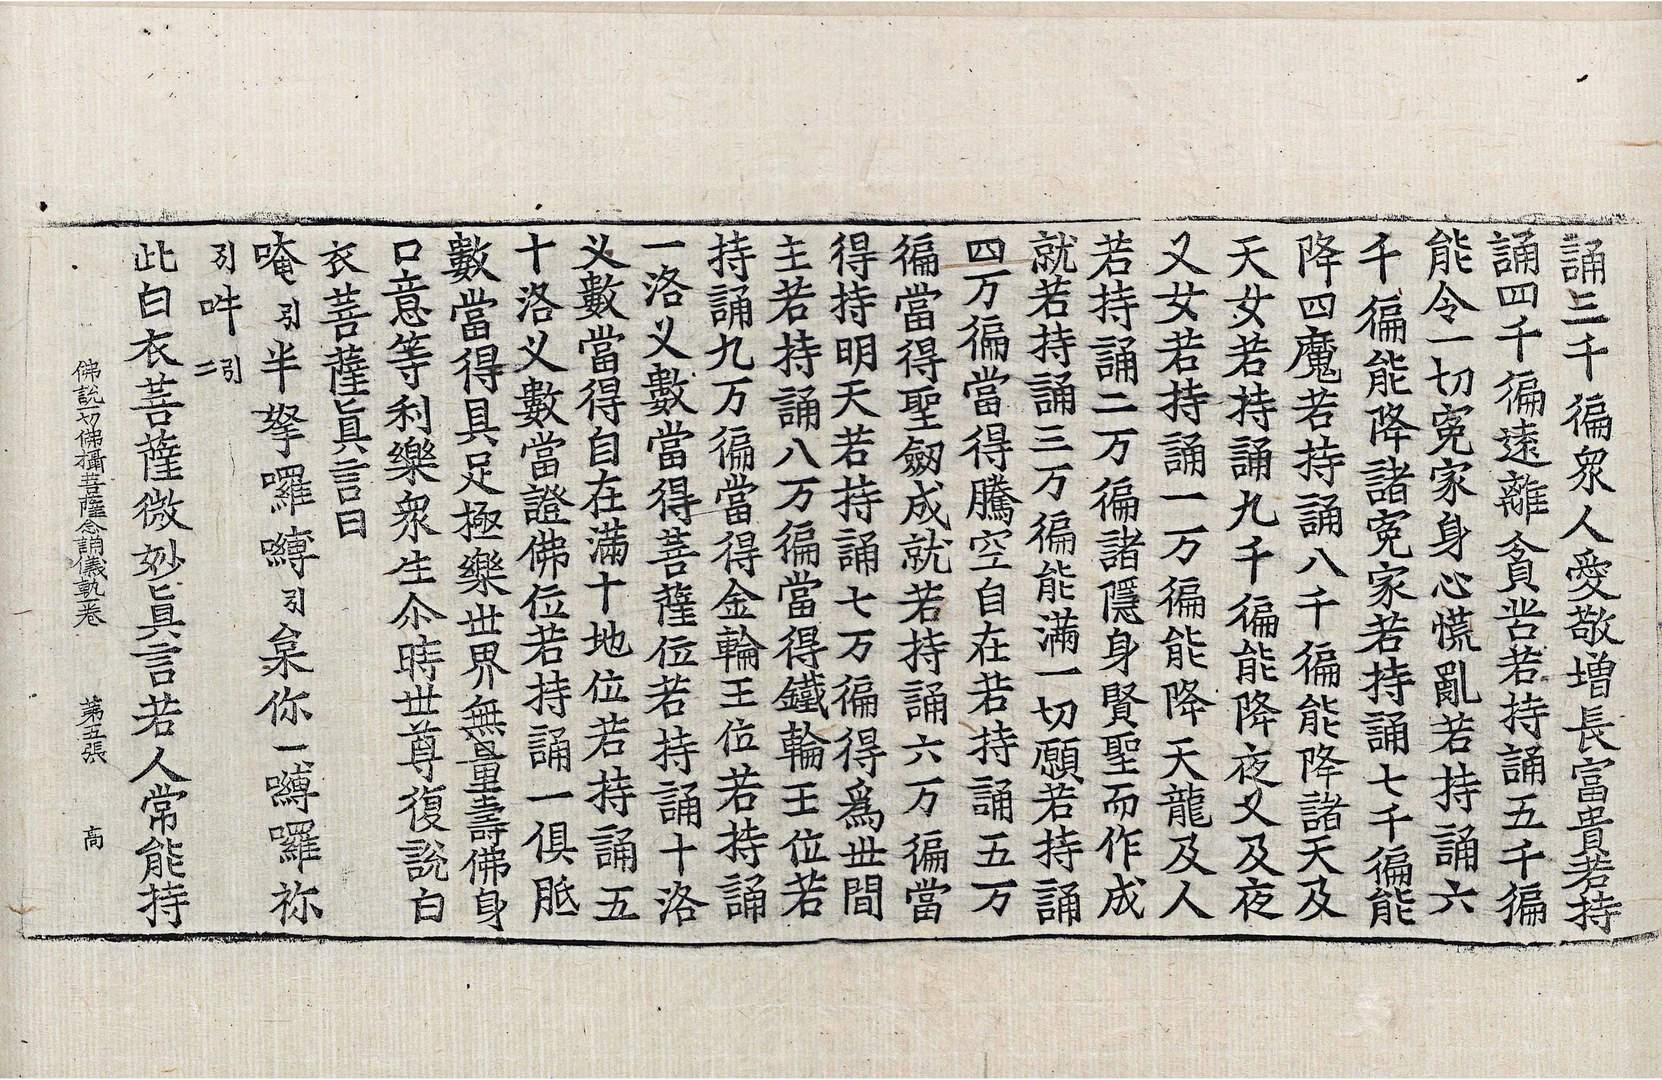 誦三千徧衆人愛敬增長富貴若持
誦四千徧遠離貪苦若持誦五千徧
能令一切寃家身心慌亂若持誦六
千徧能降諸寃家若持誦七千徧能
降四魔若持誦八千徧能降諸天及
天女若持誦九千徧能降夜叉及夜
叉女若持誦一万徧能降天龍及人
若持誦二万徧諸隱身賢聖而作成
就若持誦三万徧能滿一切願若持誦
四万徧當得騰空自在若持誦五万
徧當得聖劒成就若持誦六万徧當
得持明天若持誦七万徧得爲世間
主若持誦八万徧當得鐵輪王位若
持誦九万徧當得金輪王位若持誦
一洛叉數當得菩薩位若持誦十洛
叉數當得自在滿十地位若持誦五
十洛叉數當證佛位若持誦一俱胝
數當得具足極樂世界無量壽佛身
口意等利樂衆生尒時世尊復說白
衣菩薩眞言曰
唵引半拏囉嚩引枲你一嚩囉祢
引吽引二
此白衣菩薩微妙眞言若人常能持
佛說一切佛攝菩薩念誦儀軌一卷 第五張 高